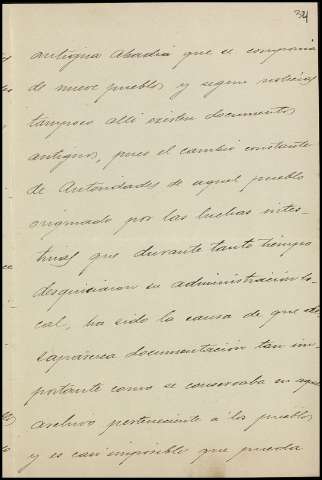 34
antigua Abadia que se componia
de nueve pueblos y segun noticias
tampoco alli existen documentos
antiguos, pues el cambio constante
de Autoridades de aquel pueblo
originado por las luchas intes-
tinas que durante tanto tiempo
desquiciaron su administración lo-
cal, ha sido la causa de que de-
saparezca documentación tan im-
portante como se conservaba en aquel
archivo perteneciente á los pueblos
y es casi imposible que pueda